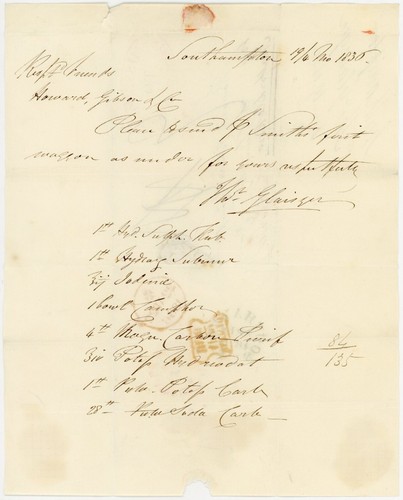 Southampton 19/4 Mo 1836.
Resp.d Friends
Howard, Gibson & Co
Please to send P Smith's first
waggon as under for yours respectfully
Thos Glaisyer
1lb Hyd. Sulph. Rub
1lb Hydrarg Submur
Iodine
1 bowl Camphor
4lb Magn. Carbon
84
Potass Hydriodat
135
1lb Potass Carb
28lb Soda Carb